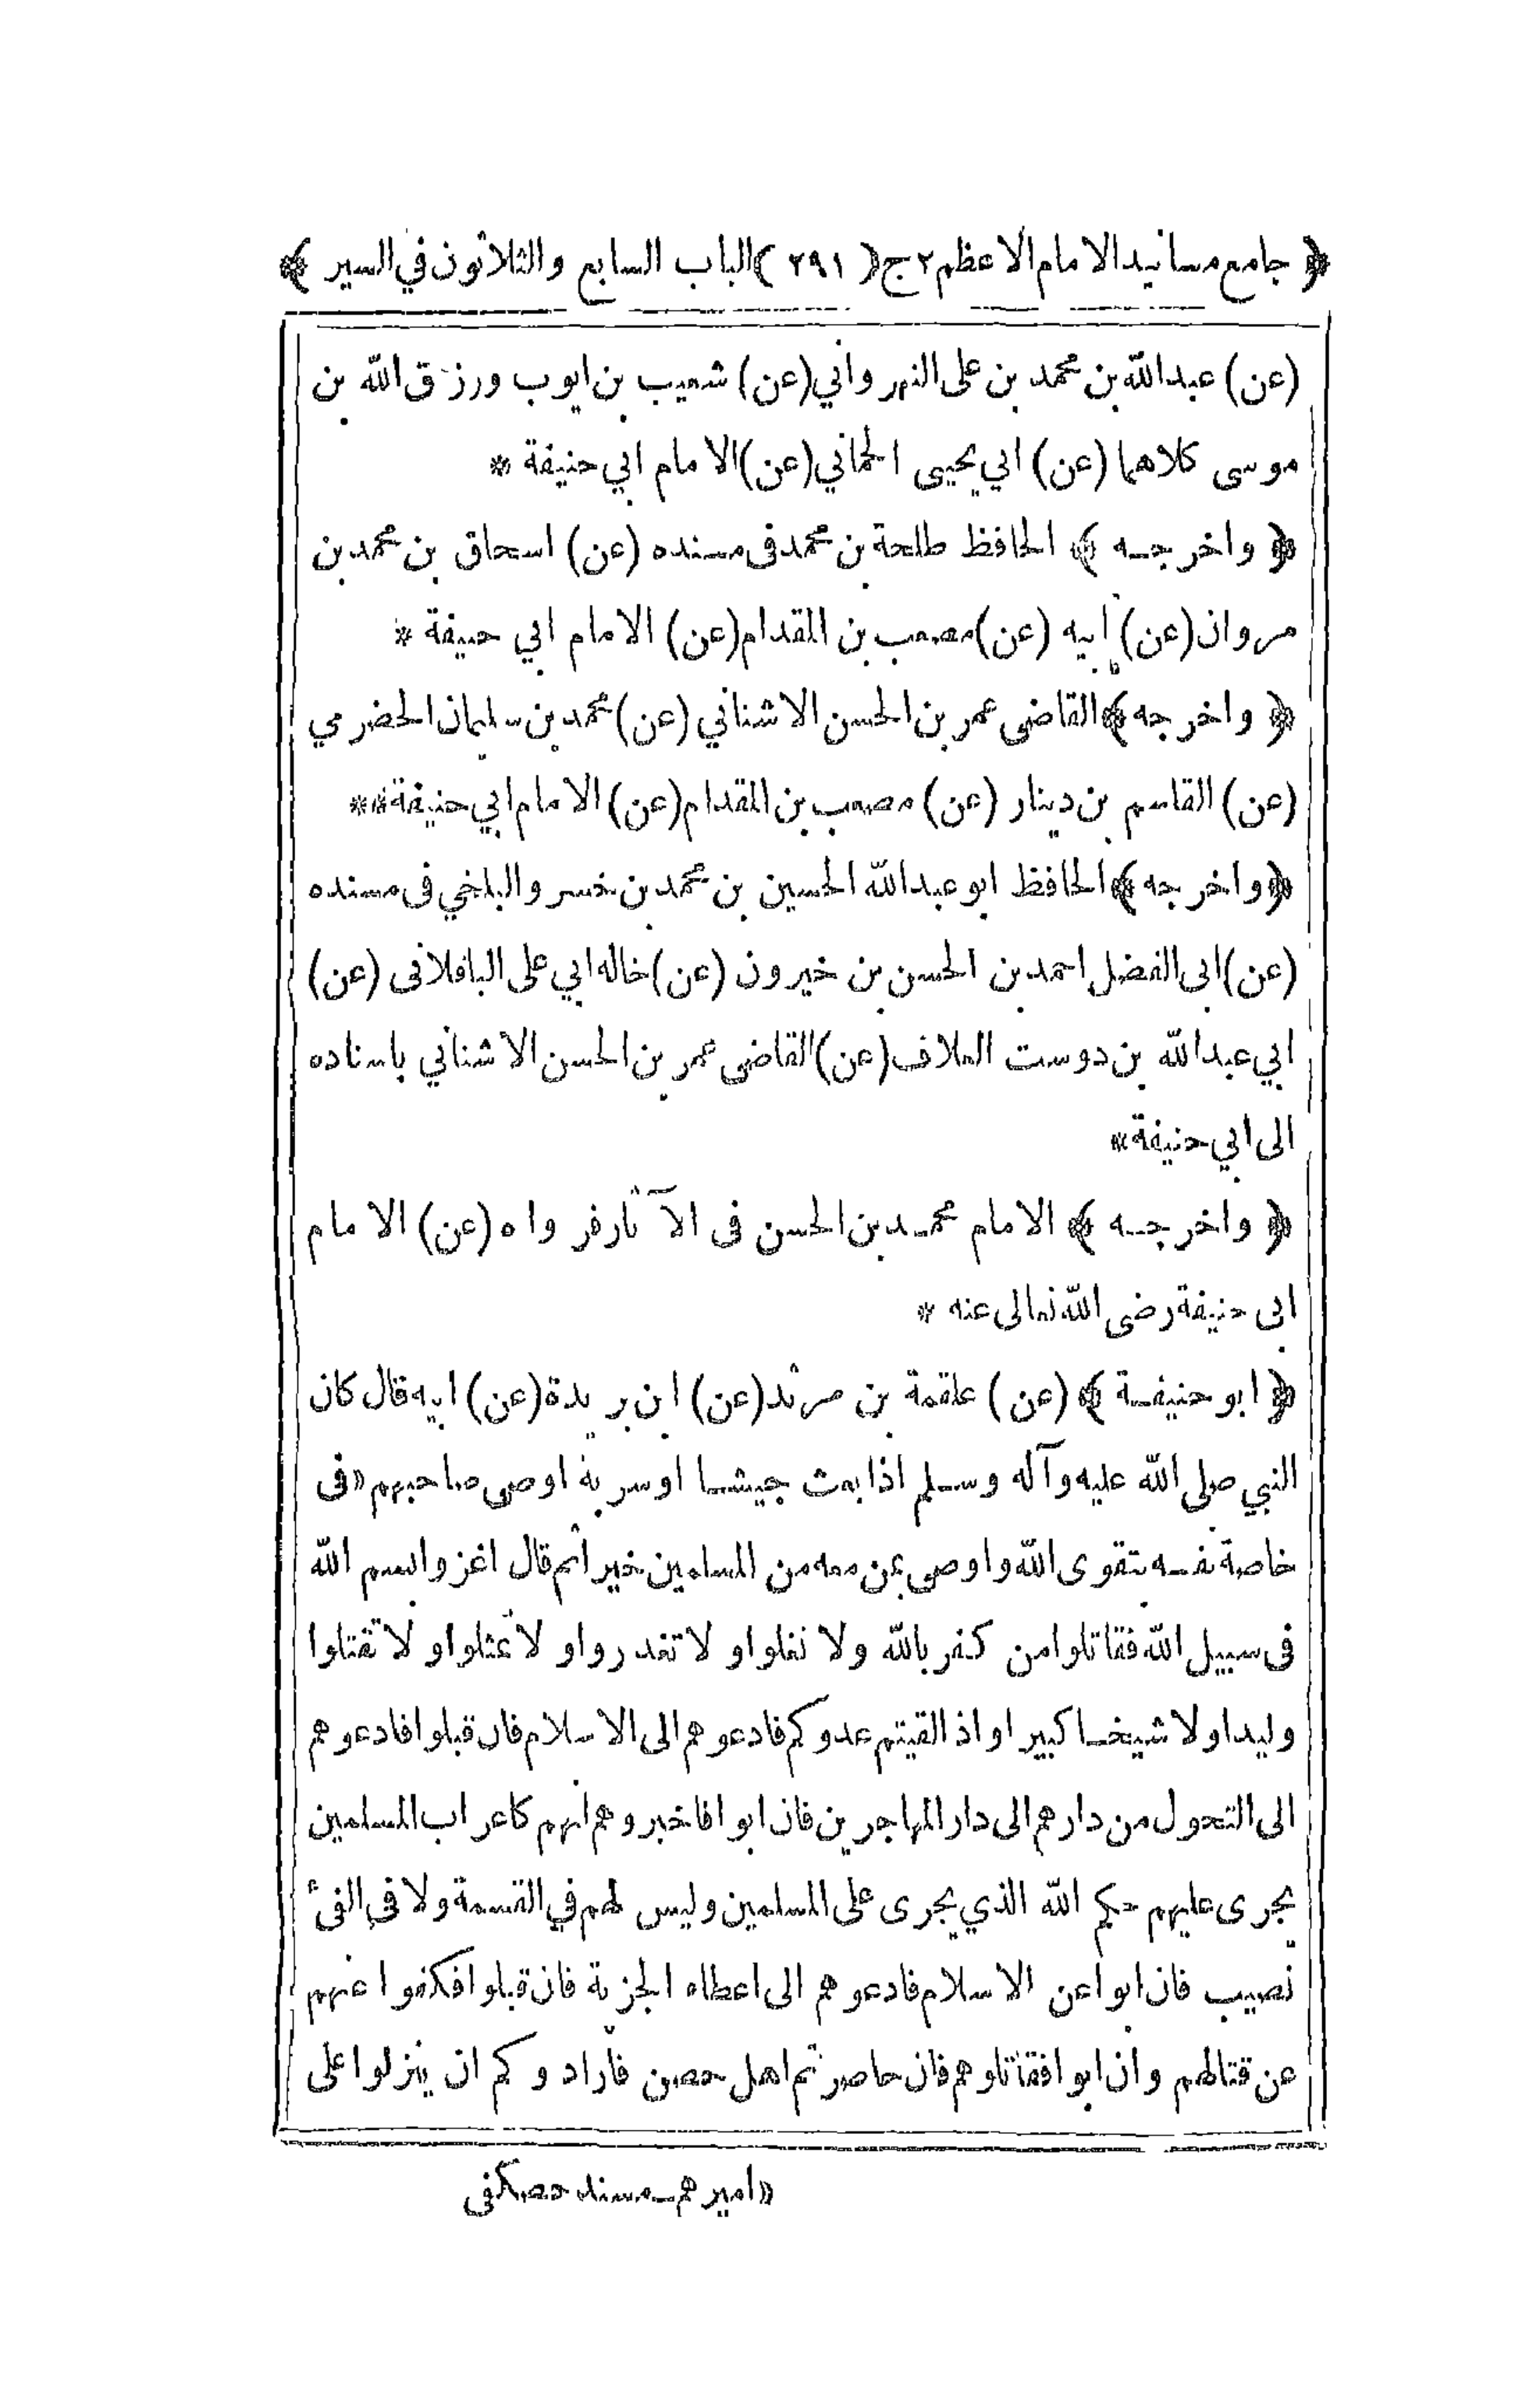 ﴿ جامع مسانيد الامام الاعظم ج٢ (٢٩١) الباب السابع والثلاثون في السير ﴾
(عن) عبدالله بن محمد بن على النهرواني (عن) شعيب بن ايوب ورزق الله بن
موسى كلاهما (عن) ابي يحيى الحماني (عن) الامام ابي حنيفة *
﴿ واخرجه ﴾ الحافظ طلحة بن محمد فى مسنده (عن) اسحاق بن محمد بن
مروان (عن) ابيه (عن) مصعب بن المقدام (عن) الامام ابي حنيفة *
﴿ واخرجه ﴾ القاضى عمر بن الحسن الاشناني (عن) محمد بن سليمان الحضرمي
(عن) القاسم بن دينار (عن) مصعب بن المقدام (عن) الامام ابي حنيفة **
﴿ واخرجه ﴾ الحافظ ابو عبدالله الحسين بن محمد بن خسرو البلخي فى مسنده
(عن) ابى الفضل احمد بن الحسن بن خيرون (عن) خاله ابي على الباقلانى (عن)
ابي عبدالله بن دوست العلاف (عن) القاضى عمر بن الحسن الاشناني باسناده
الى ابي حنيفة *
﴿ واخرجه ﴾ الامام محمد بن الحسن فى الآثار فرواه (عن) الامام
ابى حنيفة رضى الله تعالى عنه *
﴿ ابو حنيفة ﴾ (عن) علقمة بن مرثد (عن) ابن بريدة (عن) ابيه قال كان
النبي صلى الله عليه وآله وسلم اذا بعث جيشا او سرية اوصى صاحبهم « فى
خاصة نفسه بتقوى الله واوصى بمن معه من المسلمين خيراثم قال اغزوا بسم الله
فى سبيل الله فقاتلوا من كفر بالله ولا تغلوا ولا تغدروا ولا تمثلوا ولا تقتلوا
وليدا ولا شيخا كبيرا واذا لقيتم عدوكم فادعوهم الى الاسلام فان قبلوا فادعوهم
الى التحول من دارهم الى دار المهاجرين فان ابوا فاخبروهم انهم كاعراب المسلمين
يجرى عليهم حكم الله الذي يجرى على المسلمين وليس لهم في القسمة ولا في الفئ
نصيب فان ابوا عن الاسلام فادعوهم الى اعطاء الجزية فان قبلوا فكفوا عنهم
عن قتالهم وان ابوا فقاتلوهم فان حاصرتم اهل حصن فأرادوكم ان ينزلوا على
« اميرهم ـ مسند حصكفي